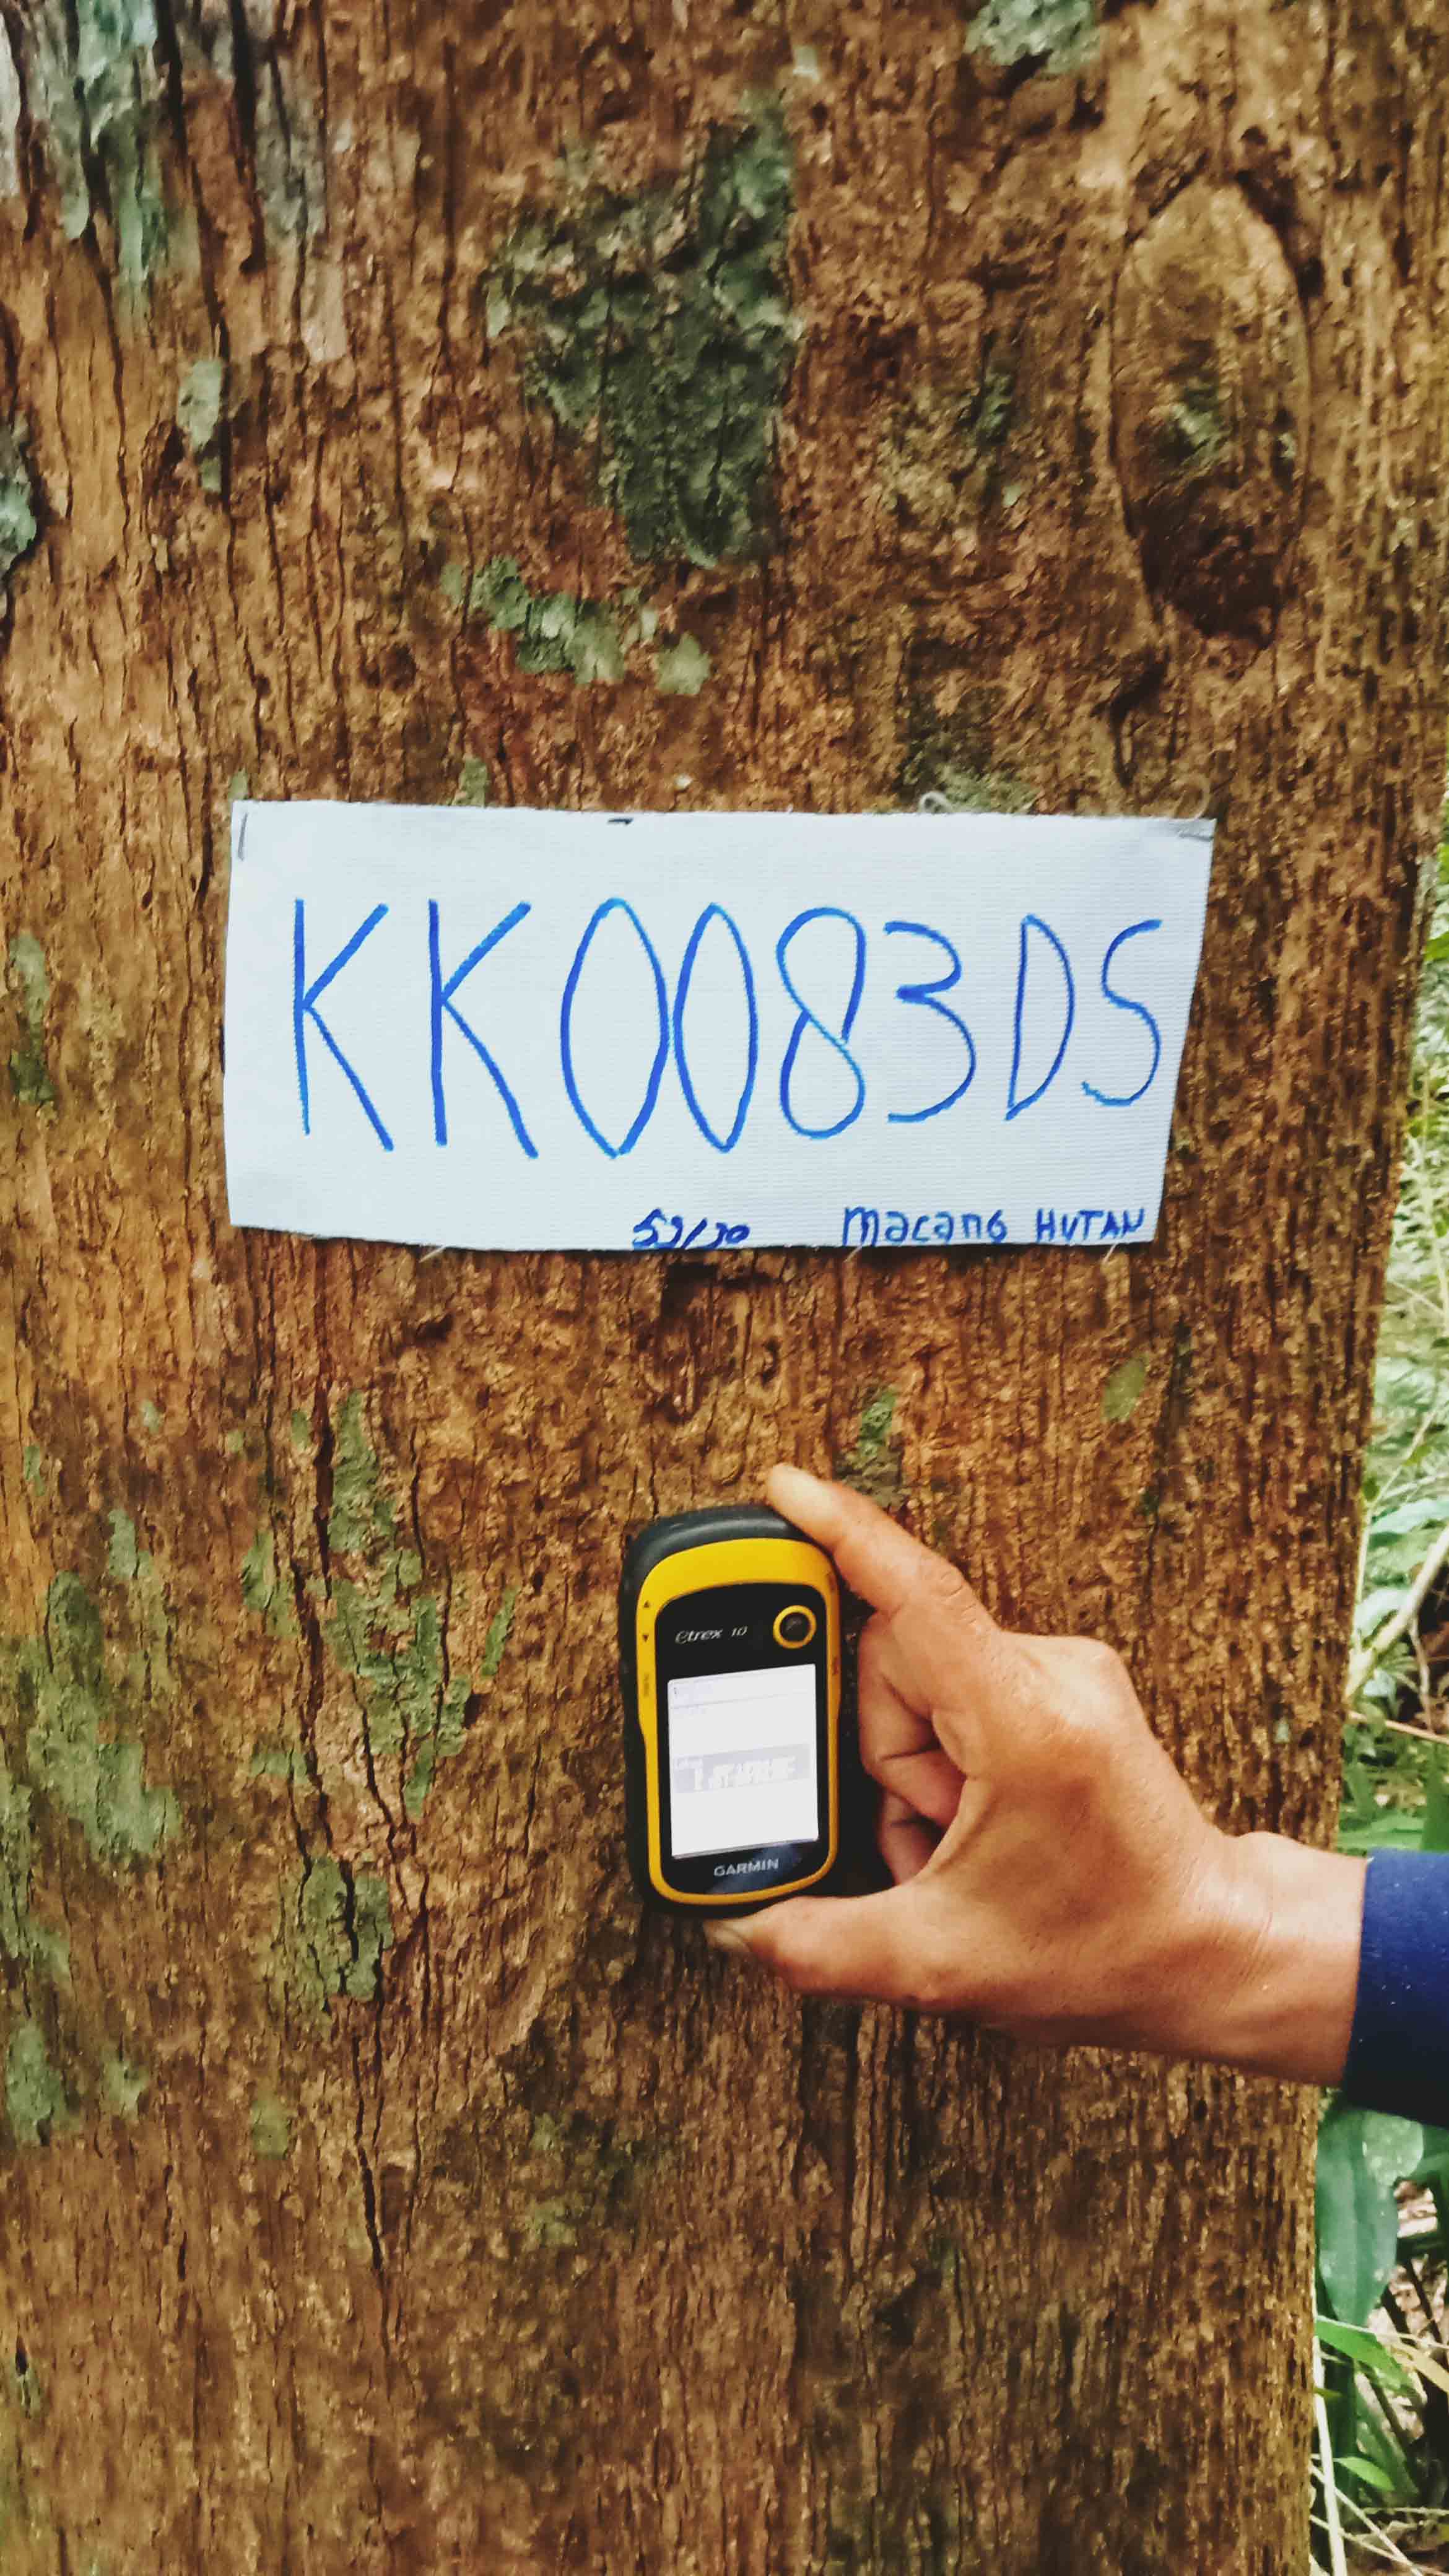 KK0083DS
53/30 Macang HUTAN
etrex 10
GARMIN